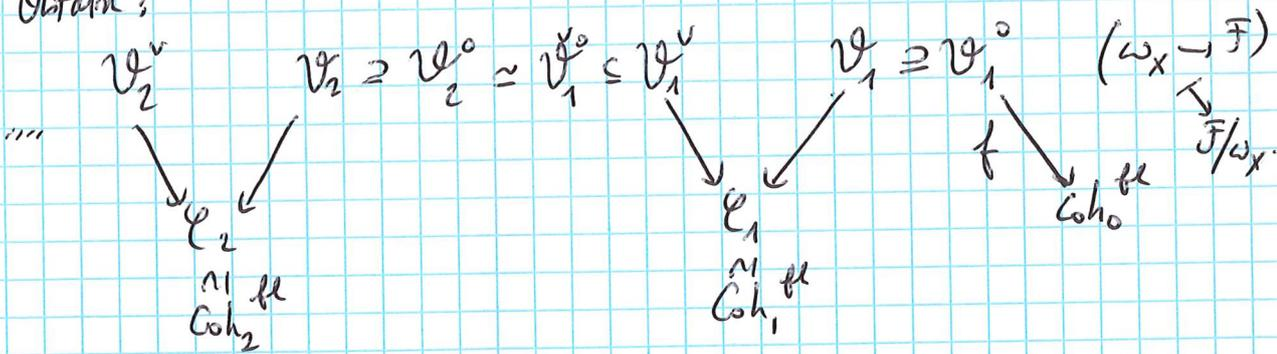 Obtain:
𝒱₂^∨ 𝒱₂ ⊇ 𝒱₂° ≃ 𝒱₁^∨° ⊆ 𝒱₁^∨ 𝒱₁ ⊇ 𝒱₁° (ω_X → F)
.... f F/ω_X.
𝒞₂ 𝒞₁ Coh₀^{fl}
≀|
≀|
Coh₂^{fl} Coh₁^{fl}